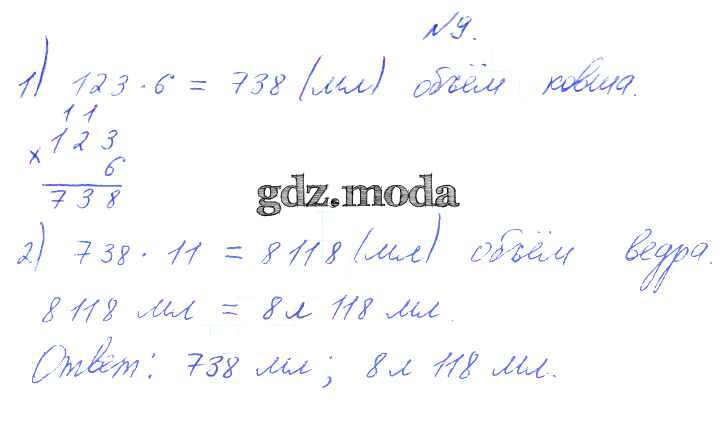 №9.
1) 123 · 6 = 738 (мл) объём ковша.
11
× 123
6
738
gdz.moda
2) 738 · 11 = 8118 (мл) объём ведра.
8118 мл = 8л 118 мл.
Ответ: 738 мл; 8л 118 мл.